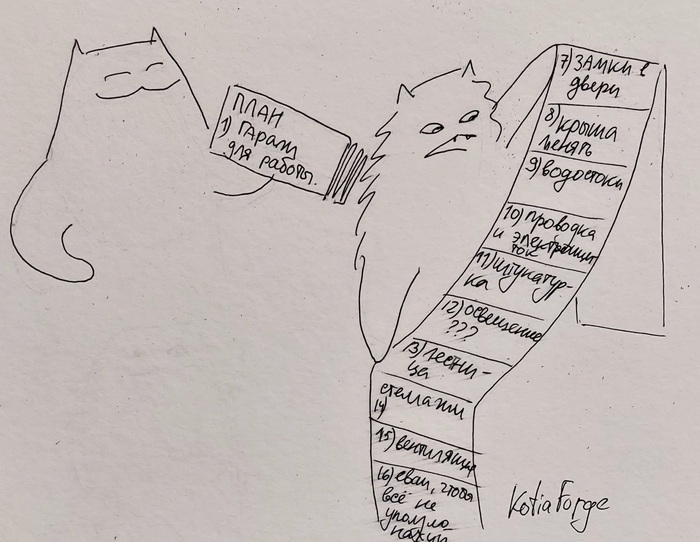 ПЛАН
1) ГАРАЖ
для работы.
7) ЗАМКИ в
двери
8) крыша
менять
9) водостоки
10) проводка
и электрощи
ток
11) штукатур-
ка
12) освещение
???
13) лестни-
ца
стеллажи
14)
15) вентиляция
16) сваи, чтобы
всё не
уползло
нахуй
KotiaForge